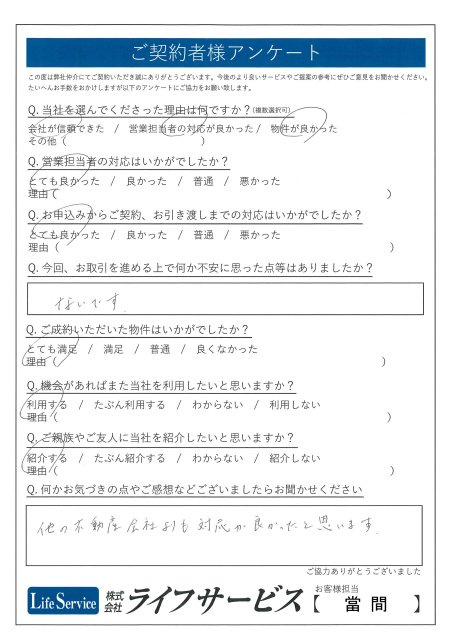 ご契約者様アンケート
この度は弊社仲介にてご契約いただき誠にありがとうございます。今後のより良いサービスやご提案の参考にぜひご意見をお聞かせください。
たいへんお手数をおかけしますが以下のアンケートにご協力をお願い致します。
Q. 当社を選んでくださった理由は何ですか？(複数選択可)
会社が信頼できた / 営業担当者の対応が良かった / 物件が良かった
その他（ ）
Q. 営業担当者の対応はいかがでしたか？
とても良かった / 良かった / 普通 / 悪かった
理由（ ）
Q. お申込みからご契約、お引き渡しまでの対応はいかがでしたか？
とても良かった / 良かった / 普通 / 悪かった
理由（ ）
Q. 今回、お取引を進める上で何か不安に思った点等はありましたか？
ないです.
Q. ご成約いただいた物件はいかがでしたか？
とても満足 / 満足 / 普通 / 良くなかった
理由（ ）
Q. 機会があればまた当社を利用したいと思いますか？
利用する / たぶん利用する / わからない / 利用しない
理由（ ）
Q. ご親族やご友人に当社を紹介したいと思いますか？
紹介する / たぶん紹介する / わからない / 紹介しない
理由（ ）
Q. 何かお気づきの点やご感想などございましたらお聞かせください
他の不動産会社よりも対応が良かったと思います.
ご協力ありがとうございました
Life Service 株式会社 ライフサービス
お客様担当
【 當間 】